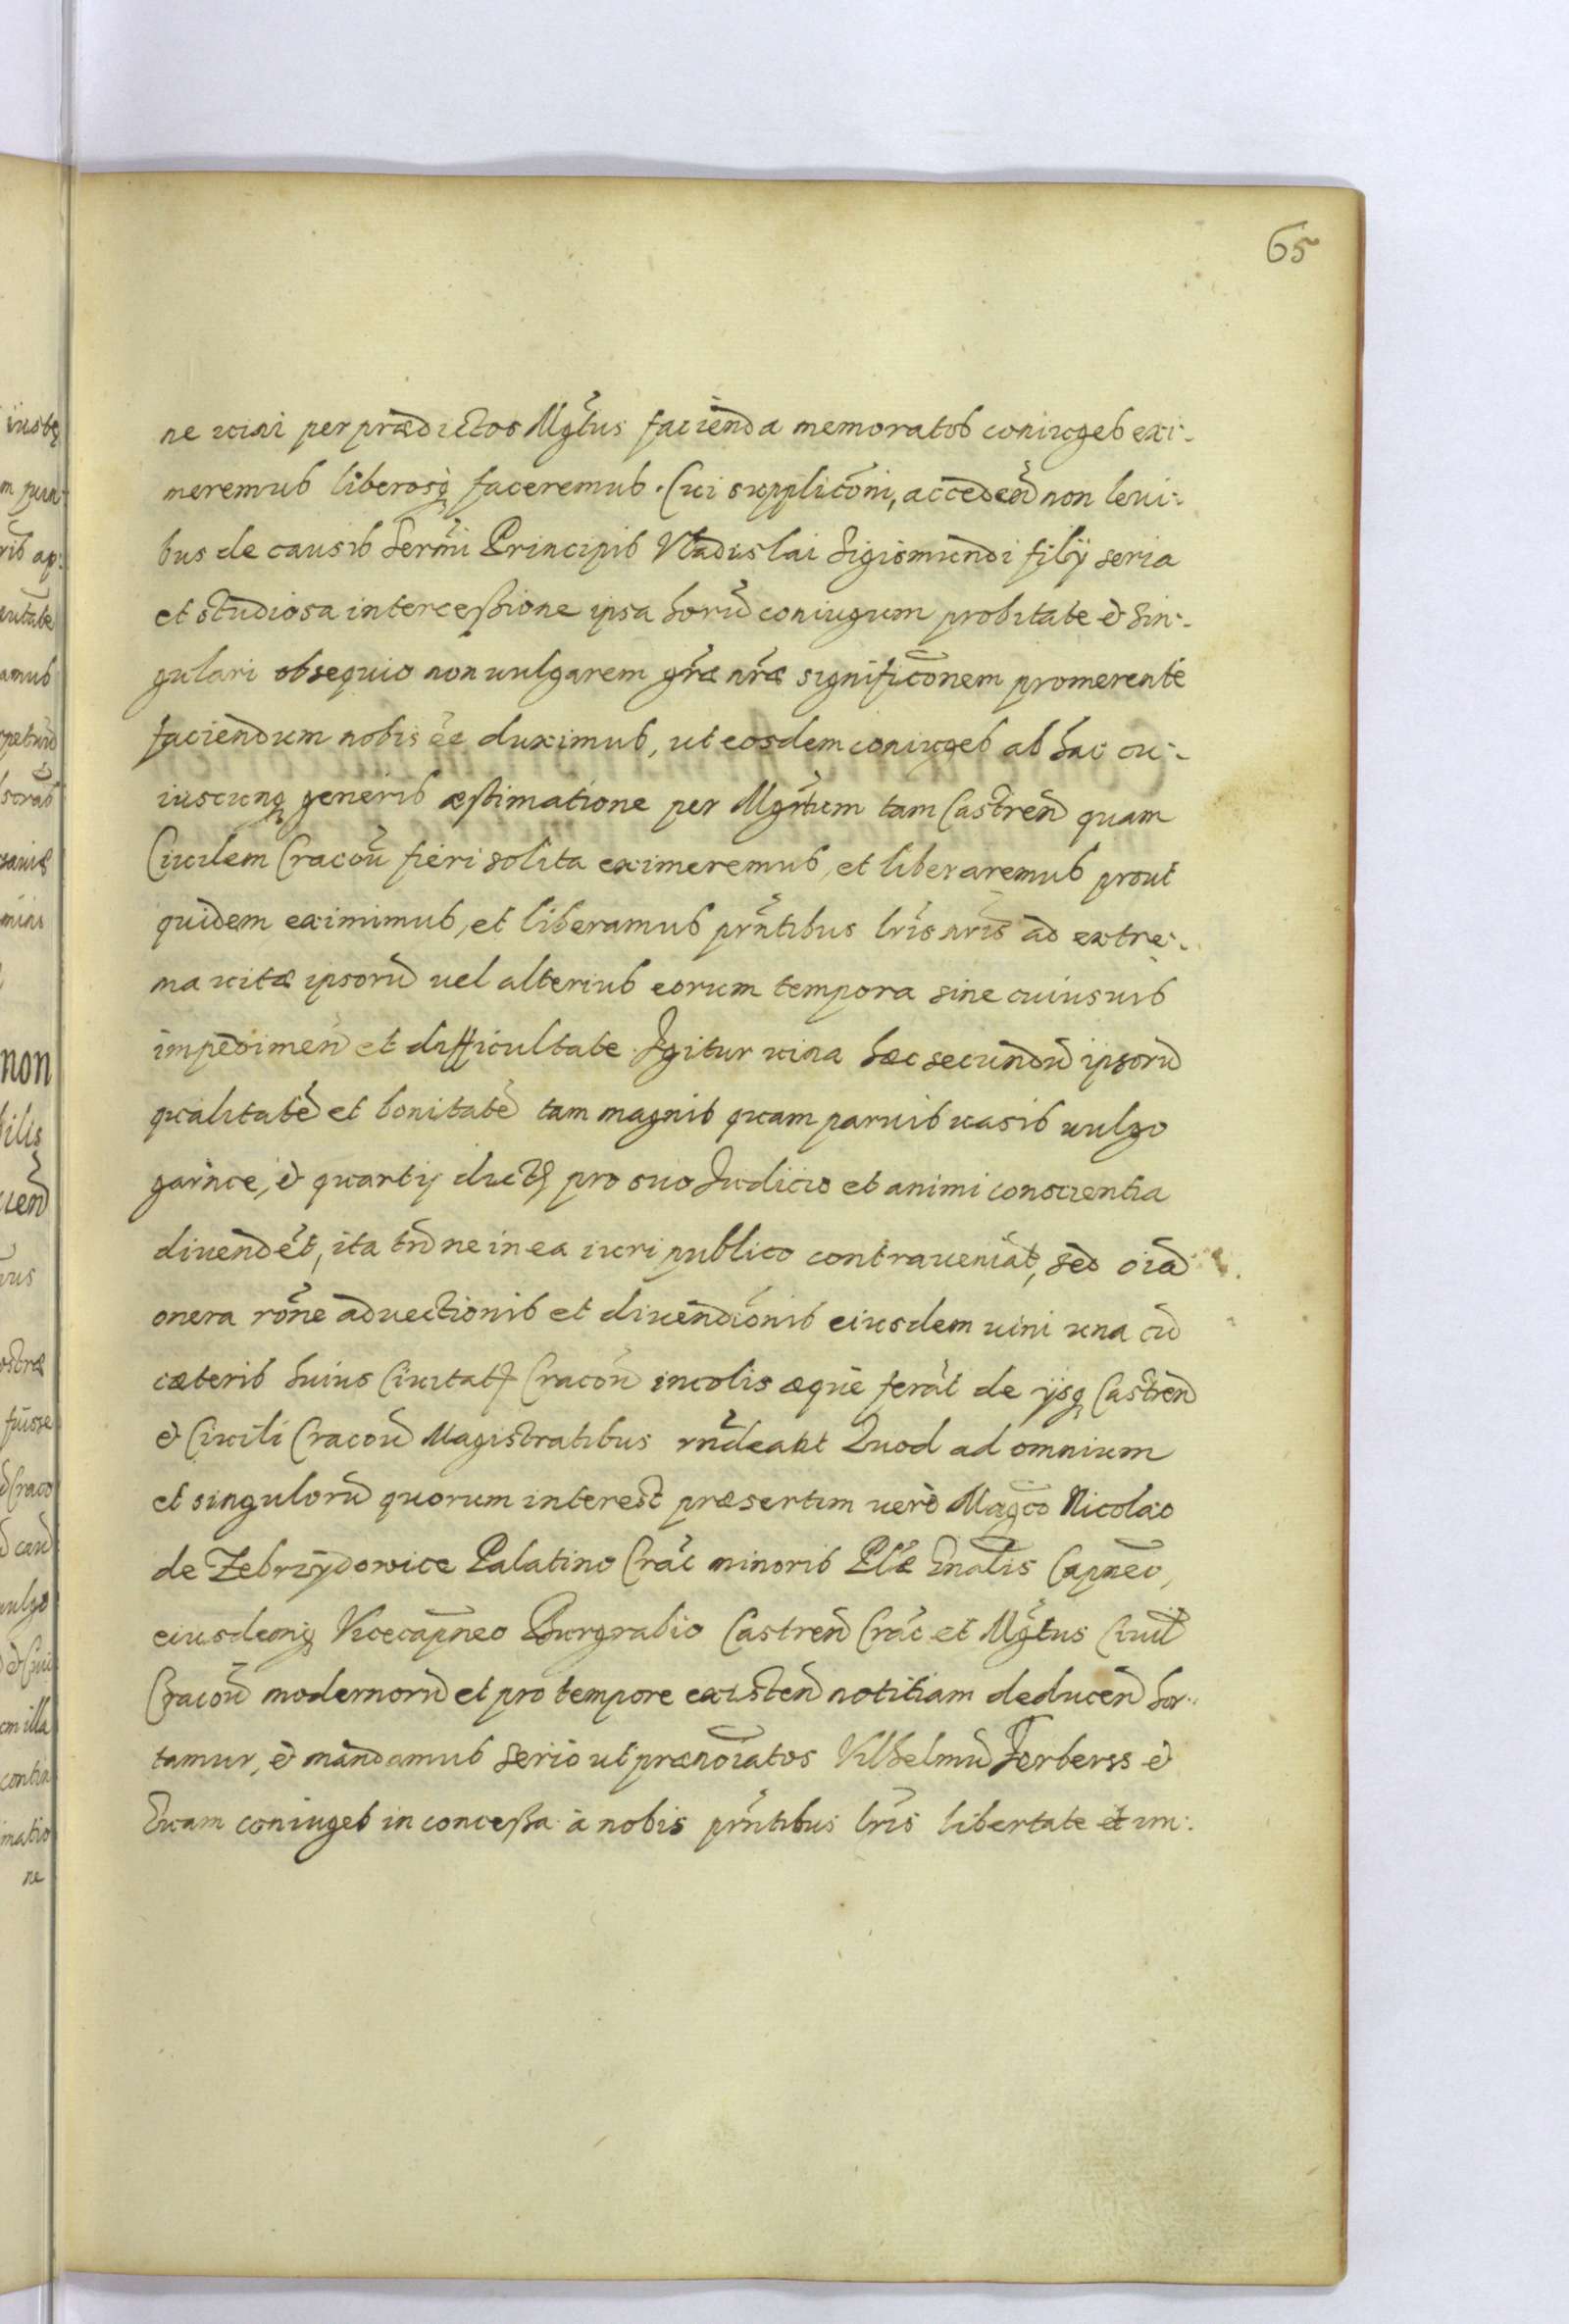 65
ne vini per prædictos Mgřtus facienda memoratos coniuges exi-
meremus liberosq̃ faceremus. Cui supplicõni, acceden̄ non leui-
bus de causis Sermĩ Principis Vladislai Sigismundi filÿ seria
et studiosa intercessione ipsa horũ coniugum probitate & sin-
gulari obsequio non vulgarem gr̃æ nr̃æ significõnem promerente
faciendum nobis ẽe duximus, ut eosdem coniuges ab hac cu-
iuscunq̃ generis æstimatione per Mgřtum tam Castren̄ quam
Ciuilem Cracou̇ fieri solita eximeremus, et liberaremus prout
quidem eximimus, et liberamus pr̃ntibus lr̃is nr̃is ad extre-
ma vitæ ipsorũ vel alterius eorum tempora sine cuiusuis
impedimen̄ et difficultate. Igitur vina hæc secundũ ipsorũ
qualitatẽ et bonitatẽ tam magnis quam paruis vasis vulgo
garnce, & quartÿ dictꝭ pro suo Iudicio et animi conscientia
diuendẽt, ita tñ ne in ea iuri publico contraueniãt, sed oĩa
onera rõne aduectionis et diuendiõnis eiusdem vini vna cũ
cæteris huius Ciuitatꝭ Cracou̇ incolis æque ferãt de ijsq̃ Castren̄
& Ciuili Cracou̇ Magistratibus rñdeant Quod ad omnium
et singulorũ quorum interest præsertim verò Mag̃co Nicolao
de Zebrzÿdowice Palatino Crac̃ minoris Plæ Gnãlis Capñeo,
eiusdemq̃ Vicecapñeo Burgrabio Castren̄ Crac̃ et Mgřtus Ciuil̃
Cracou̇ modernorũ et pro tempore existen̄ notitiam deducen̄ hor-
tamur, & mandamus serio ut prænoĩatos Vilhelmũ Forberss &
Euam coniuges in concessa à nobis pr̃ntibus lr̃is libertate et im-